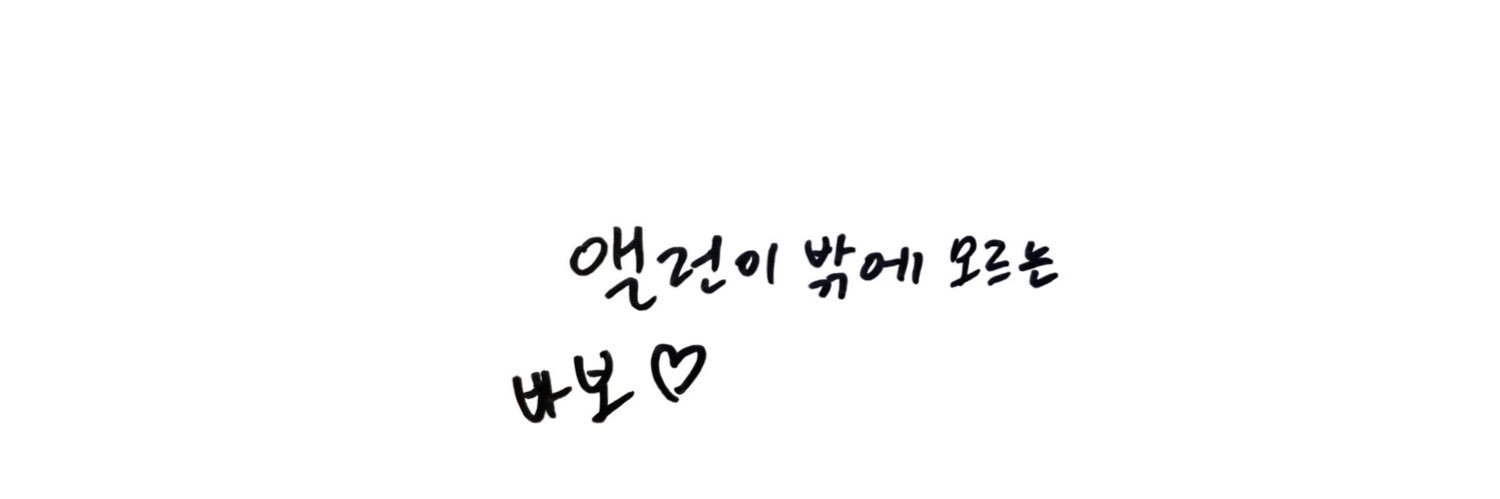 앨런이 밖에 모르는
바보♡